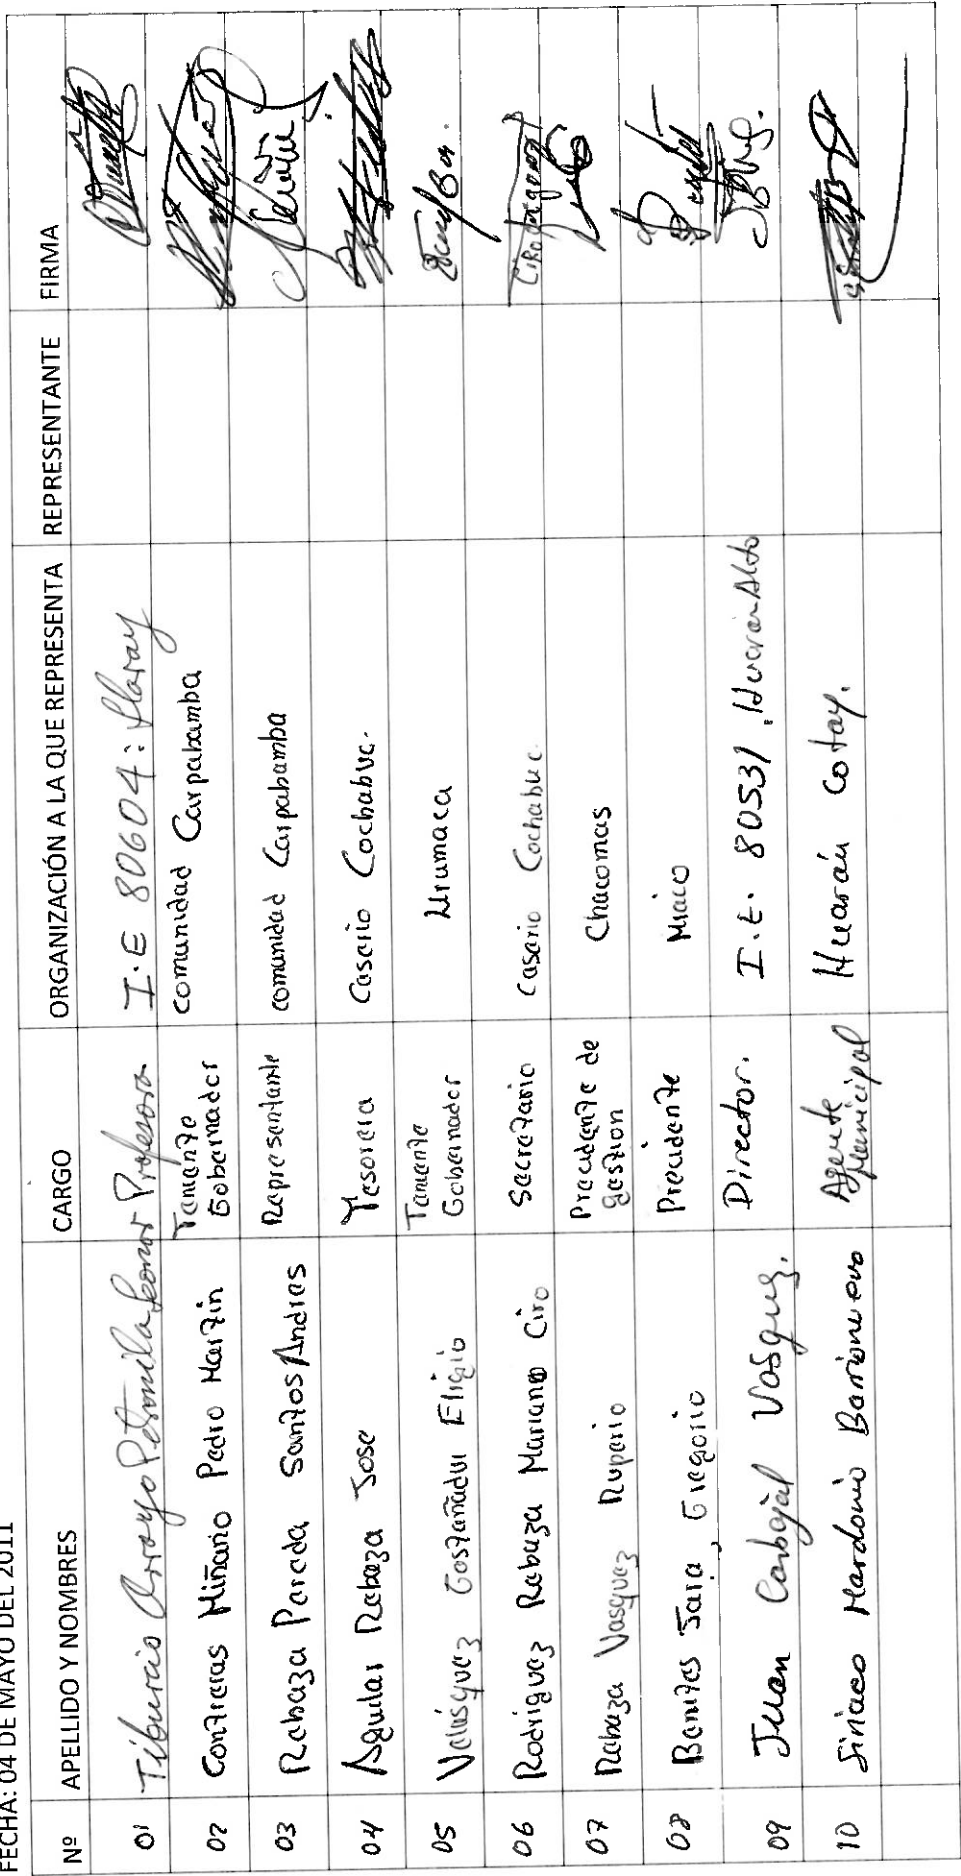 FECHA: 04 DE MAYO DEL 2011
Nº APELLIDO Y NOMBRES CARGO ORGANIZACIÓN A LA QUE REPRESENTA REPRESENTANTE FIRMA
01 Tiburcio Arroyo Petronila Leonor Profesora I.E 80604: Llaray
02 Contreras Miñano Pedro Martin Teniente Gobernador comunidad Carpabamba
03 Rebaza Pareda Santos Andres Representante comunidad Carpabamba
04 Aguilar Rebaza Jose Tesorera Caserio Cochabuc.
05 Velásquez Gostañadui Eligio Teniente Gobernador Urumaca
06 Rodriguez Rebaza Mariano Ciro Secretario Caserio Cochabuc
07 Rebaza Vasquez Ruperio Precidente de gestion Chacomas
08 Benites Jara, Gregorio Precidente Miaco
09 Juan Carbajal Vasquez. Director. I.E. 80531. Huaran Alto
10 Siriaco Mardonio Barrionuevo Agente Municipal Huarán Cotay.